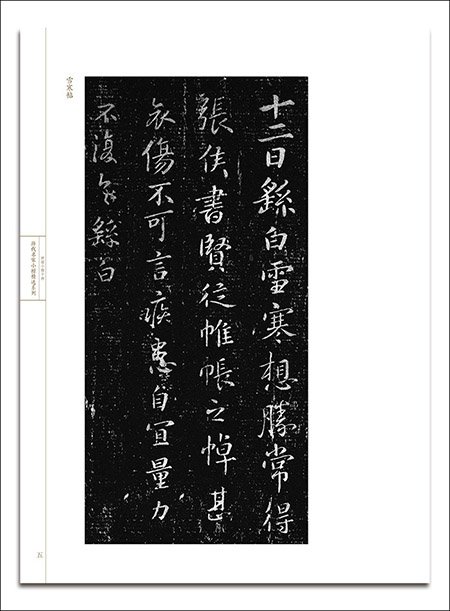 十二日繇白雪寒想勝常得
張侯書賢從帷帳之悼甚
哀傷不可言疾患自宜量力
不復具繇白
雪寒帖
历代名家小楷精选系列
五